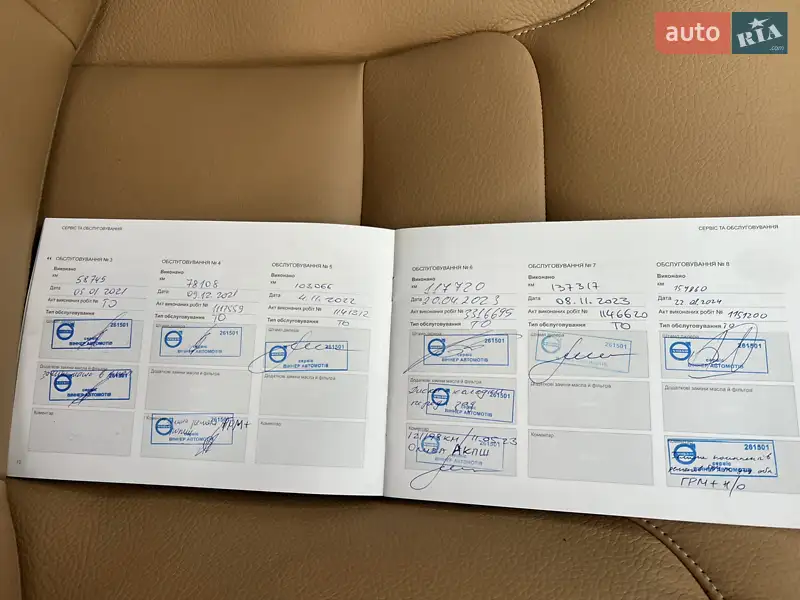 auto RIA.com
СЕРВІС ТА ОБСЛУГОВУВАННЯ
ОБСЛУГОВУВАННЯ № 3
Виконано
км 58745
Дата 05.01.2021
Акт виконаних робіт №
Тип обслуговування ТО
261501
сервіс
ВІННЕР АВТОМОТІВ
Додаткові заміни масла й фільтра
ВІННЕР АВТОМОТІВ
Коментар
ОБСЛУГОВУВАННЯ № 4
Виконано
км 78108
Дата 09.12.2021
Акт виконаних робіт № 1117559
Тип обслуговування ТО
261501
сервіс
ВІННЕР АВТОМОТІВ
Додаткові заміни масла й фільтра
261501
ГРМ+
ВІННЕР АВТОМОТІВ
ОБСЛУГОВУВАННЯ № 5
Виконано
км 103066
Дата 4.11.2022
Акт виконаних робіт № 1141312
Тип обслуговування ТО
261501
сервіс
ВІННЕР АВТОМОТІВ
Додаткові заміни масла й фільтра
Коментар
СЕРВІС ТА ОБСЛУГОВУВАННЯ
ОБСЛУГОВУВАННЯ № 6
Виконано
км 117720
Дата 20.04.2023
Акт виконаних робіт № 3316695
Тип обслуговування ТО
261501
ВІННЕР АВТОМОТІВ
Додаткові заміни масла й фільтра
Диски колодки
перед
ВІННЕР АВТОМОТІВ
Коментар
121148 км / 11.05.23
АКПШ
ВІННЕР АВТОМОТІВ
ОБСЛУГОВУВАННЯ № 7
Виконано
км 137317
Дата 08.11.2023
Акт виконаних робіт № 1146620
Тип обслуговування ТО
261501
Додаткові заміни масла й фільтра
Коментар
ОБСЛУГОВУВАННЯ № 8
Виконано
км 159860
Дата 22.01.2024
Акт виконаних робіт № 1151200
Тип обслуговування ТО
261501
сервіс
ВІННЕР АВТОМОТІВ
Додаткові заміни масла й фільтра
261501
сервіс
ГРМ + н/о